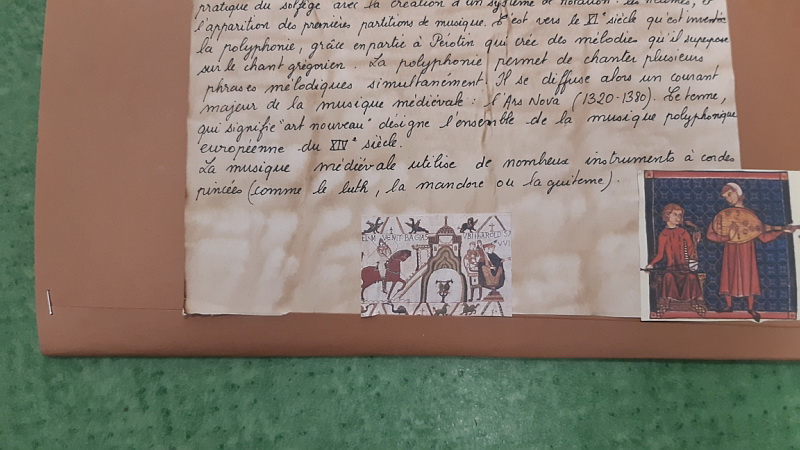 pratique du solfège avec la création d'un système de notation : les neumes, et
l'apparition des premières partitions de musique. C'est vers le XIe siècle qu'est inventée
la polyphonie, grâce en partie à Pérotin qui crée des mélodies qu'il superpose
sur le chant grégorien. La polyphonie permet de chanter plusieurs
phrases mélodiques simultanément. Il se diffuse alors un courant
majeur de la musique médiévale : l'Ars Nova (1320-1380). Ce terme,
qui signifie "art nouveau" désigne l'ensemble de la musique polyphonique
européenne du XIVe siècle.
La musique médiévale utilise de nombreux instruments à cordes
pincées (comme le luth, la mandore ou la guiterne).
VENIT BAGIAS
HAROLD